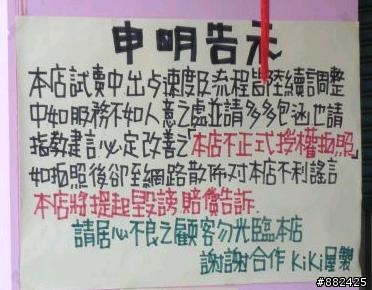 申明告示
本店試賣中.出歺速度及流程皆陸續調整
中如服務不如人意之處並請多多包涵也請
指教建言必定改善之「本店不正式授權拍照」
如拍照後卻至網路散佈对本店不利謠言
本店將提起毀謗賠償告訴
請居心不良之顧客勿光臨本店
謝謝合作 KiKi屋製
#882425